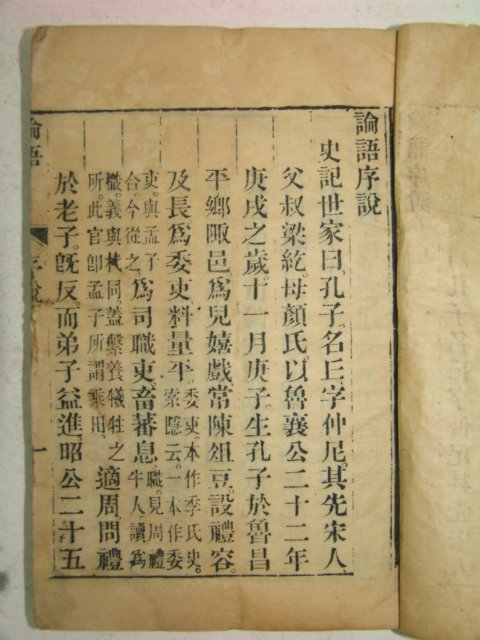 論語序說
史記世家曰。孔子。名丘。字仲尼。其先宋人。
父叔梁紇。母顏氏。以魯襄公二十二年
庚戌之歲。十一月庚子。生孔子於魯昌
平鄉陬邑。爲兒嬉戲。常陳俎豆。設禮容。
及長。爲委吏。料量平。委吏。本作季氏史。
索隱云。一本作委
吏。與孟子
合。今從之。爲司職吏。畜蕃息。職。見周禮
牛人。讀爲
樴。義與杙同。蓋繫養犧牲之
所。此官卽孟子所謂乘田。適周。問禮
於老子。旣反。而弟子益進。昭公二十五
論語
序說
一